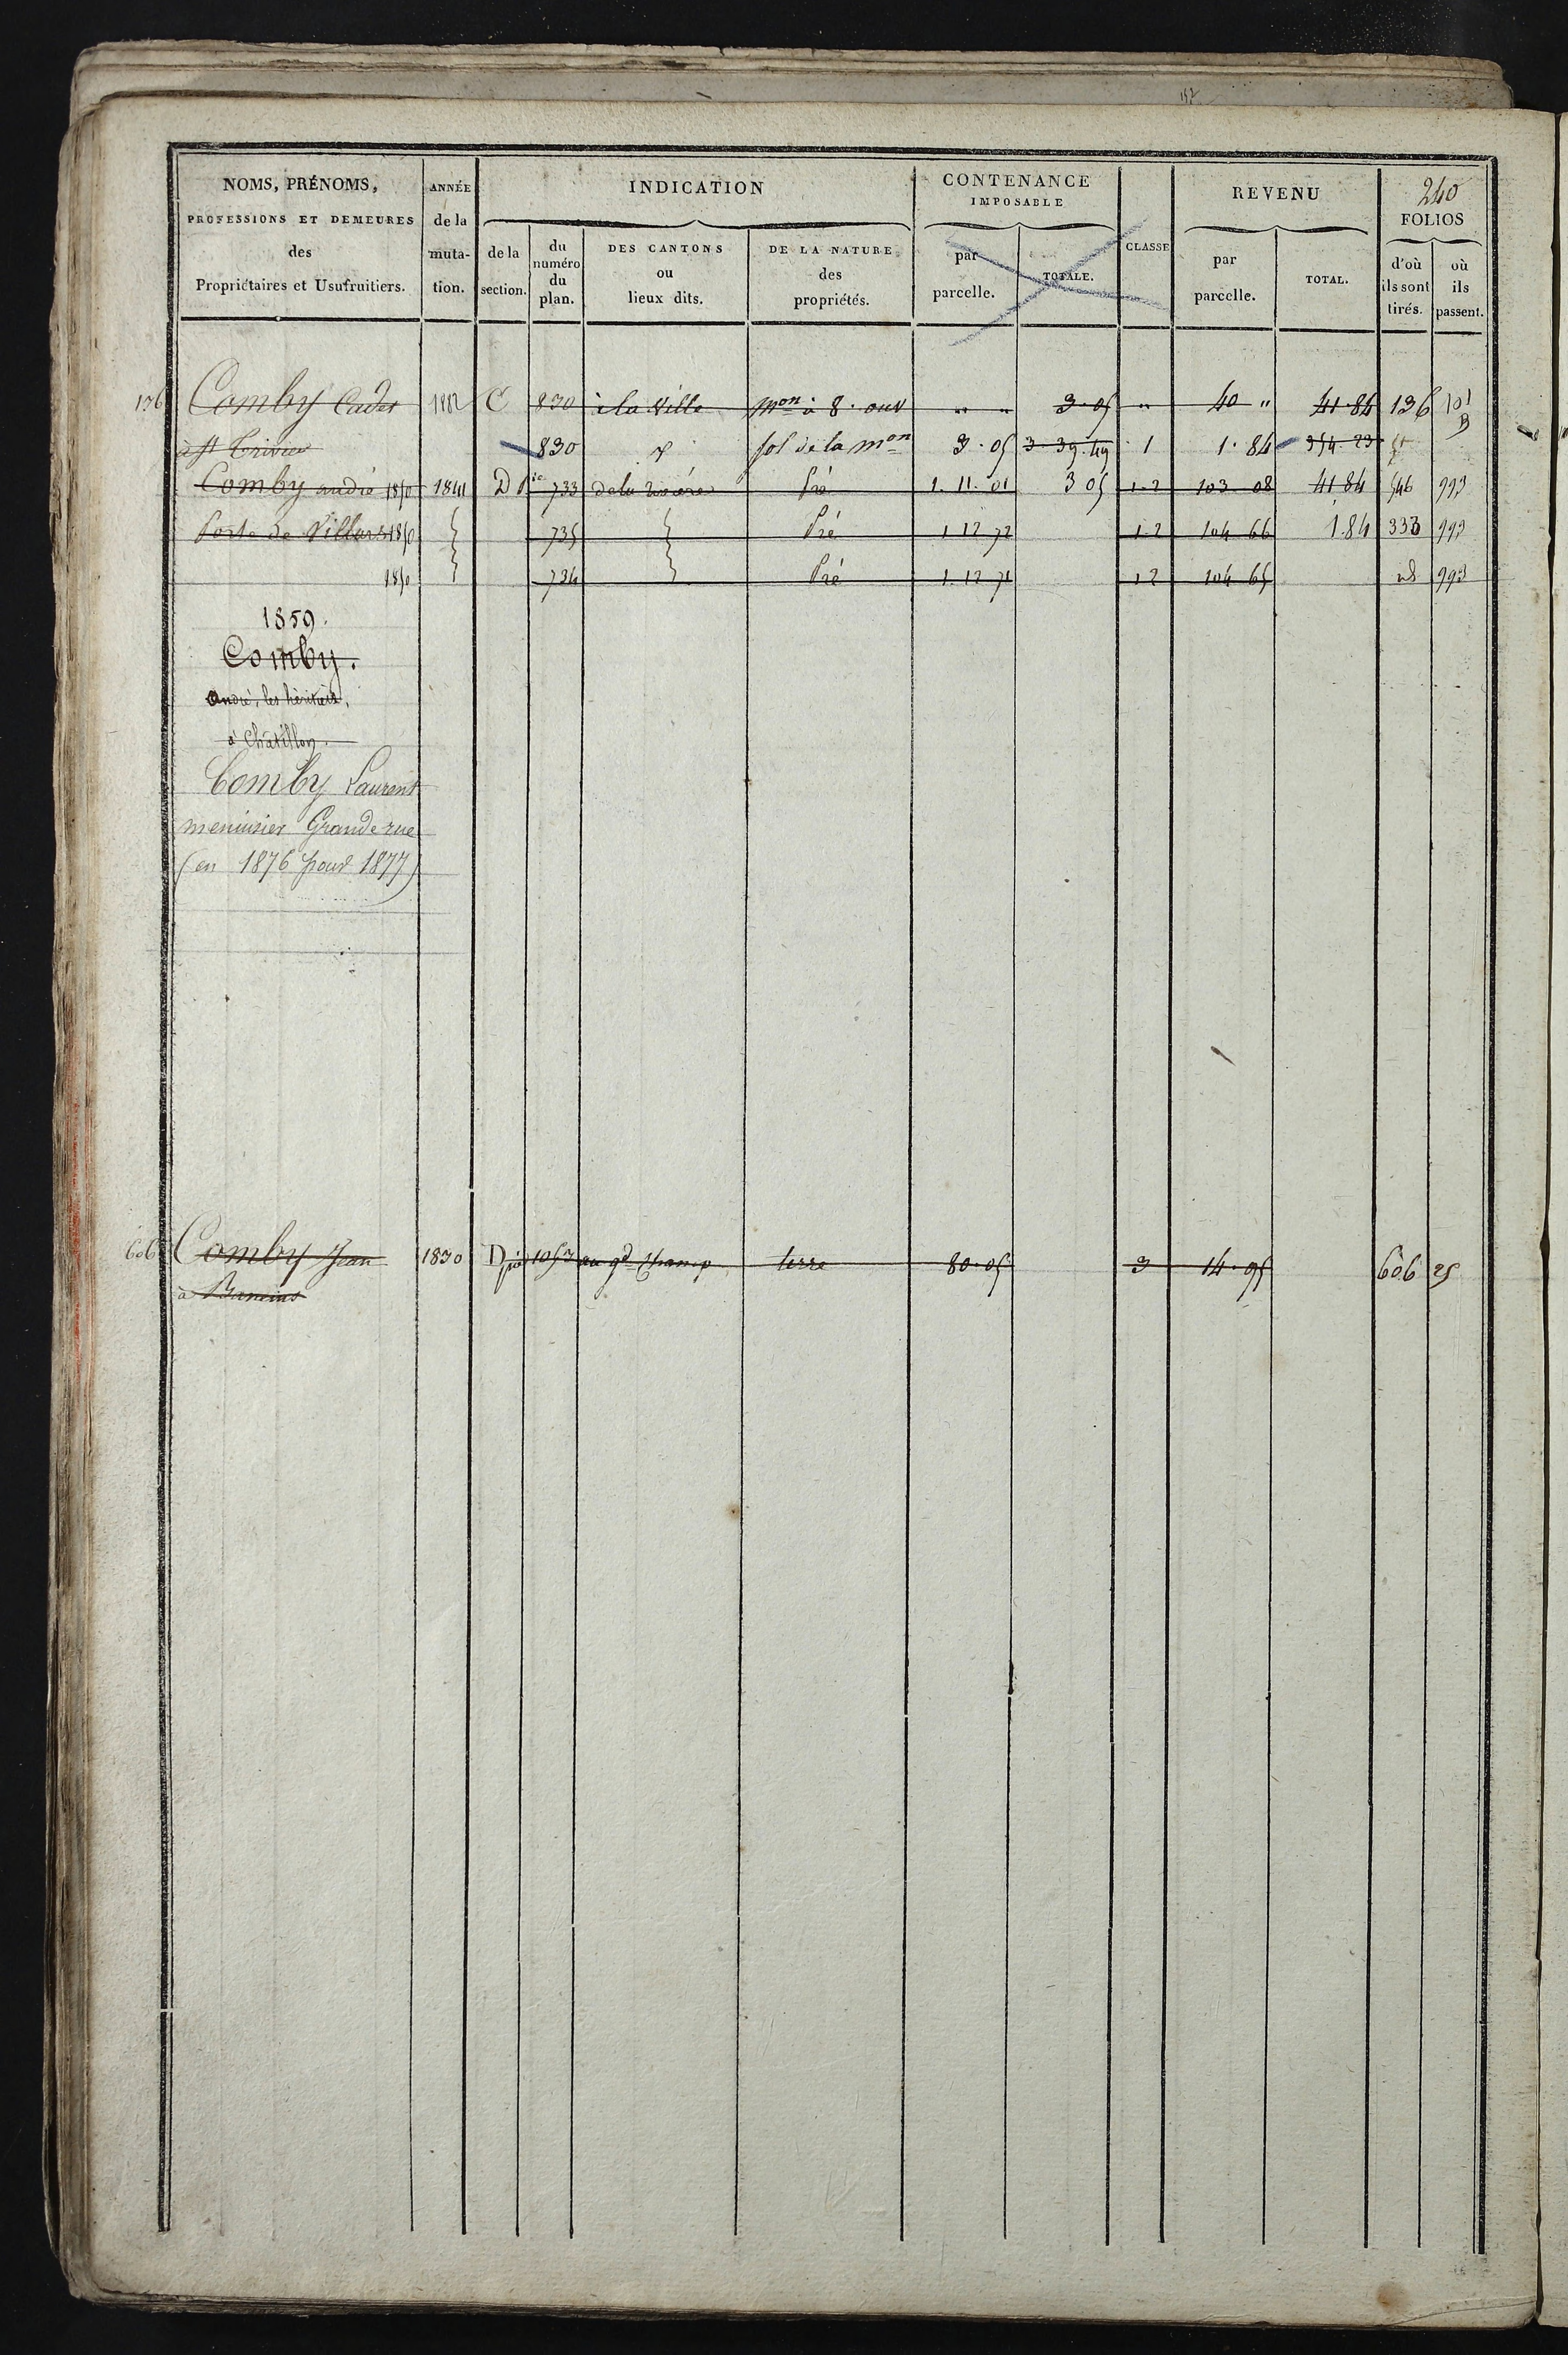 157
240
NOMS, PRÉNOMS, PROFESSIONS ET DEMEURES des Propriétaires et Usufruitiers.
ANNÉE de la muta- tion.
INDICATION
de la section.
du numéro du plan.
DES CANTONS ou lieux dits.
DE LA NATURE des propriétés.
CONTENANCE IMPOSABLE
par parcelle.
TOTALE.
CLASSE
REVENU
par parcelle.
TOTAL.
FOLIOS
d'où ils sont tirés.
où ils passent.
136 Comby Cadet 1882 C 830 à la Ville mon à 8. ouv " " 3.05 " 40 " 41.84 136 101 B
à St Trivier 830 sol de la mon 3.05 3 39.49 1 1.84 354.23
Comby andré 1850 1841 D 733 de la rivière Pré 1.11.01 3 05 1-2 103 08 41 84 546 993
Porte de Villars 1850 735 Pré 1 12 72 1-2 104 66 1.84 333 993
1850 734 Pré 1.12 71 1 2 104 65 id 993
1859.
Comby.
André, les héritiers,
à Châtillon.
Comby Laurent
menuisier Grande rue
(en 1876 pour 1877)
606 Comby Jean 1830 D pie 1053 au gd Champ terre 80.05 3 14.95 606 25
à Baneins